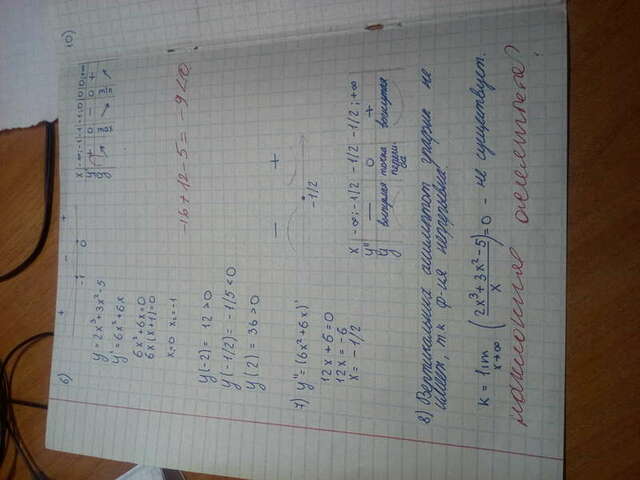 6) + − +
-1 0
x -∞;-1 -1 -1;0 0 0;+∞
y' + 0 − 0 +
y ↗ ↘ ↗
10)
y = 2x³+3x²-5
y' = 6x²+6x
6x²+6x=0
6x(x+1)=0
x₁=0 x₂=-1
-16+12-5= -9<0
y(-2)= 12 >0
y(-1/2)= -1/5 <0
y(2)= 36 >0
− +
-1/2
7) y''=(6x²+6x)'
12x+6=0
12x=-6
x= -1/2
x -∞;-1/2 -1/2 -1/2;+∞
y'' − 0 +
y выпуклая точка вогнутая
переги-
ба
8) Вертикальных асимптот график не
имеет, т.к ф-ия непрерывна.
k = lim x→∞ ((2x³+3x²-5)/x)=0 - не существует.
наклонная асимптота?